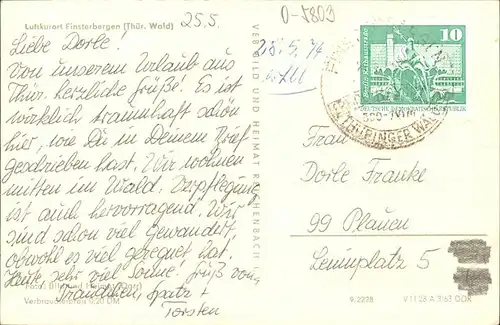 Luftkurort Finsterbergen (Thür. Wald)
25.5.
0-5803
28.5.74
Liebe Dorle!
Von unserem Urlaub aus
Thür. herzliche Grüße! Es ist
wirklich traumhaft schön
hier, wie Du in Deinem Brief
geschrieben hast. Wir wohnen
mitten im Wald. Verpflegung
ist auch hervorragend. Wir
sind schon viel gewandert,
obwohl es viel geregnet hat.
Heute sehr viel Sonne! Grüß von
Spatz +
Torsten
Verbraucherpreis 0,20 DM
VEB BILD UND HEIMAT REICHENBACH
10
DEUTSCHE DEMOKRATISCHE REPUBLIK
THÜRINGER WALD
Frau
Dorle Franke
99 Plauen
Leninplatz 5
9.2228
V 11 28 A 3/63 DDR